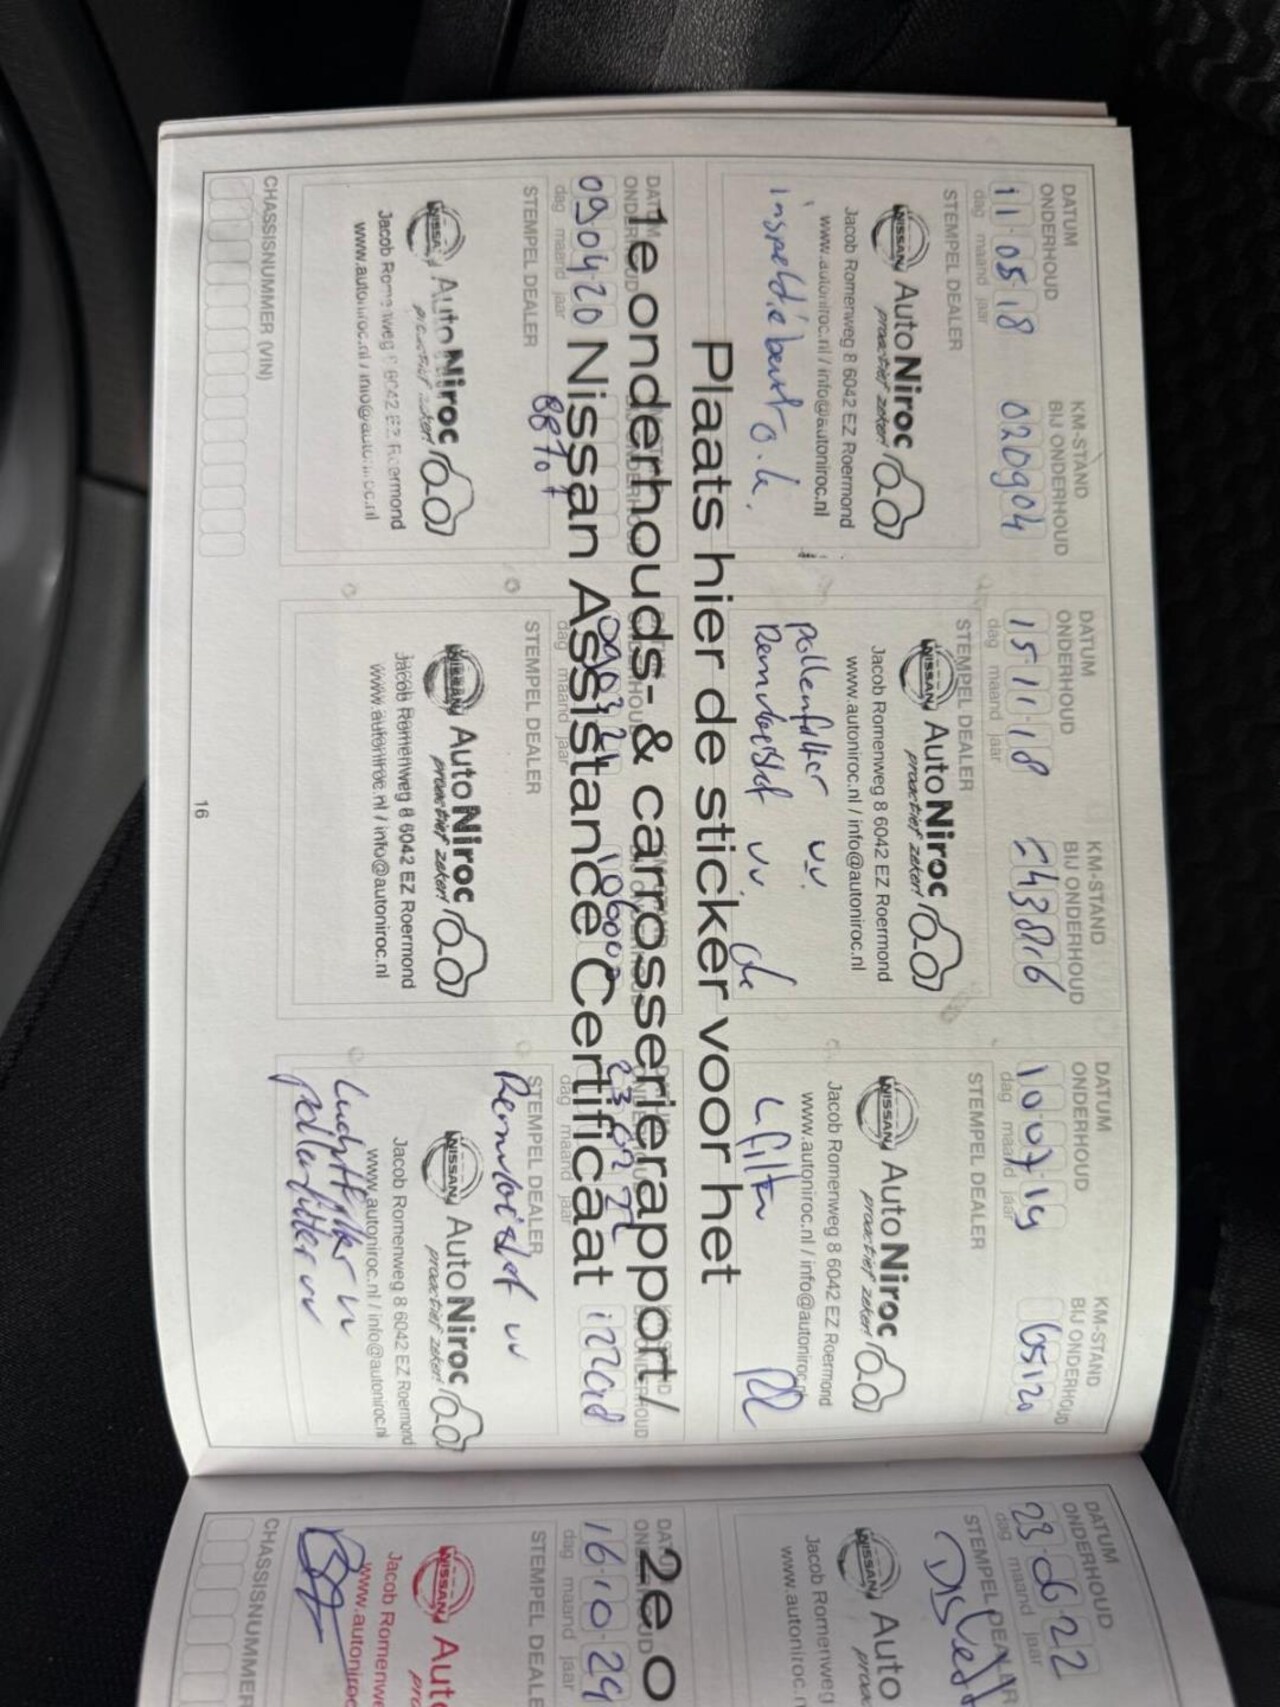 DATUM
ONDERHOUD
KM-STAND
BIJ ONDERHOUD
11 05 18
020904
dag maand jaar
STEMPEL DEALER
NISSAN
AutoNiroc
proactief zeker!
Jacob Romenweg 8 6042 EZ Roermond
www.autoniroc.nl / info@autoniroc.nl
DATUM
ONDERHOUD
KM-STAND
BIJ ONDERHOUD
15 11 18
dag maand jaar
STEMPEL DEALER
NISSAN
AutoNiroc
proactief zeker!
Jacob Romenweg 8 6042 EZ Roermond
www.autoniroc.nl / info@autoniroc.nl
pollenfilter vv.
Remvloeistof vv.
DATUM
ONDERHOUD
KM-STAND
BIJ ONDERHOUD
10 07 19
65120
dag maand jaar
STEMPEL DEALER
NISSAN
AutoNiroc
proactief zeker!
Jacob Romenweg 8 6042 EZ Roermond
www.autoniroc.nl / info@autoniroc.nl
Plaats hier de sticker voor het
1e onderhouds- & carrosserierapport /
Nissan Assistance Certificaat
09 04 20
88707
dag maand jaar
STEMPEL DEALER
NISSAN
AutoNiroc
proactief zeker!
Jacob Romenweg 8 6042 EZ Roermond
www.autoniroc.nl / info@autoniroc.nl
09 03 21
dag maand jaar
STEMPEL DEALER
NISSAN
AutoNiroc
proactief zeker!
Jacob Romenweg 8 6042 EZ Roermond
www.autoniroc.nl / info@autoniroc.nl
23 02 22
dag maand jaar
STEMPEL DEALER
Remvloeistof vv
NISSAN
AutoNiroc
proactief zeker!
Jacob Romenweg 8 6042 EZ Roermond
www.autoniroc.nl / info@autoniroc.nl
Luchtfilter vv
pollenfilter vv
CHASSISNUMMER (VIN)
16
DATUM
ONDERHOUD
23 06 22
dag maand jaar
STEMPEL DEALER
NISSAN
Auto
Jacob Romenweg
www.autoniroc.n
2e o
16 10 24
dag maand jaar
STEMPEL DEALE
NISSAN
Auto
pro
Jacob Romenwe
www.autoniroc
CHASSISNUMMER